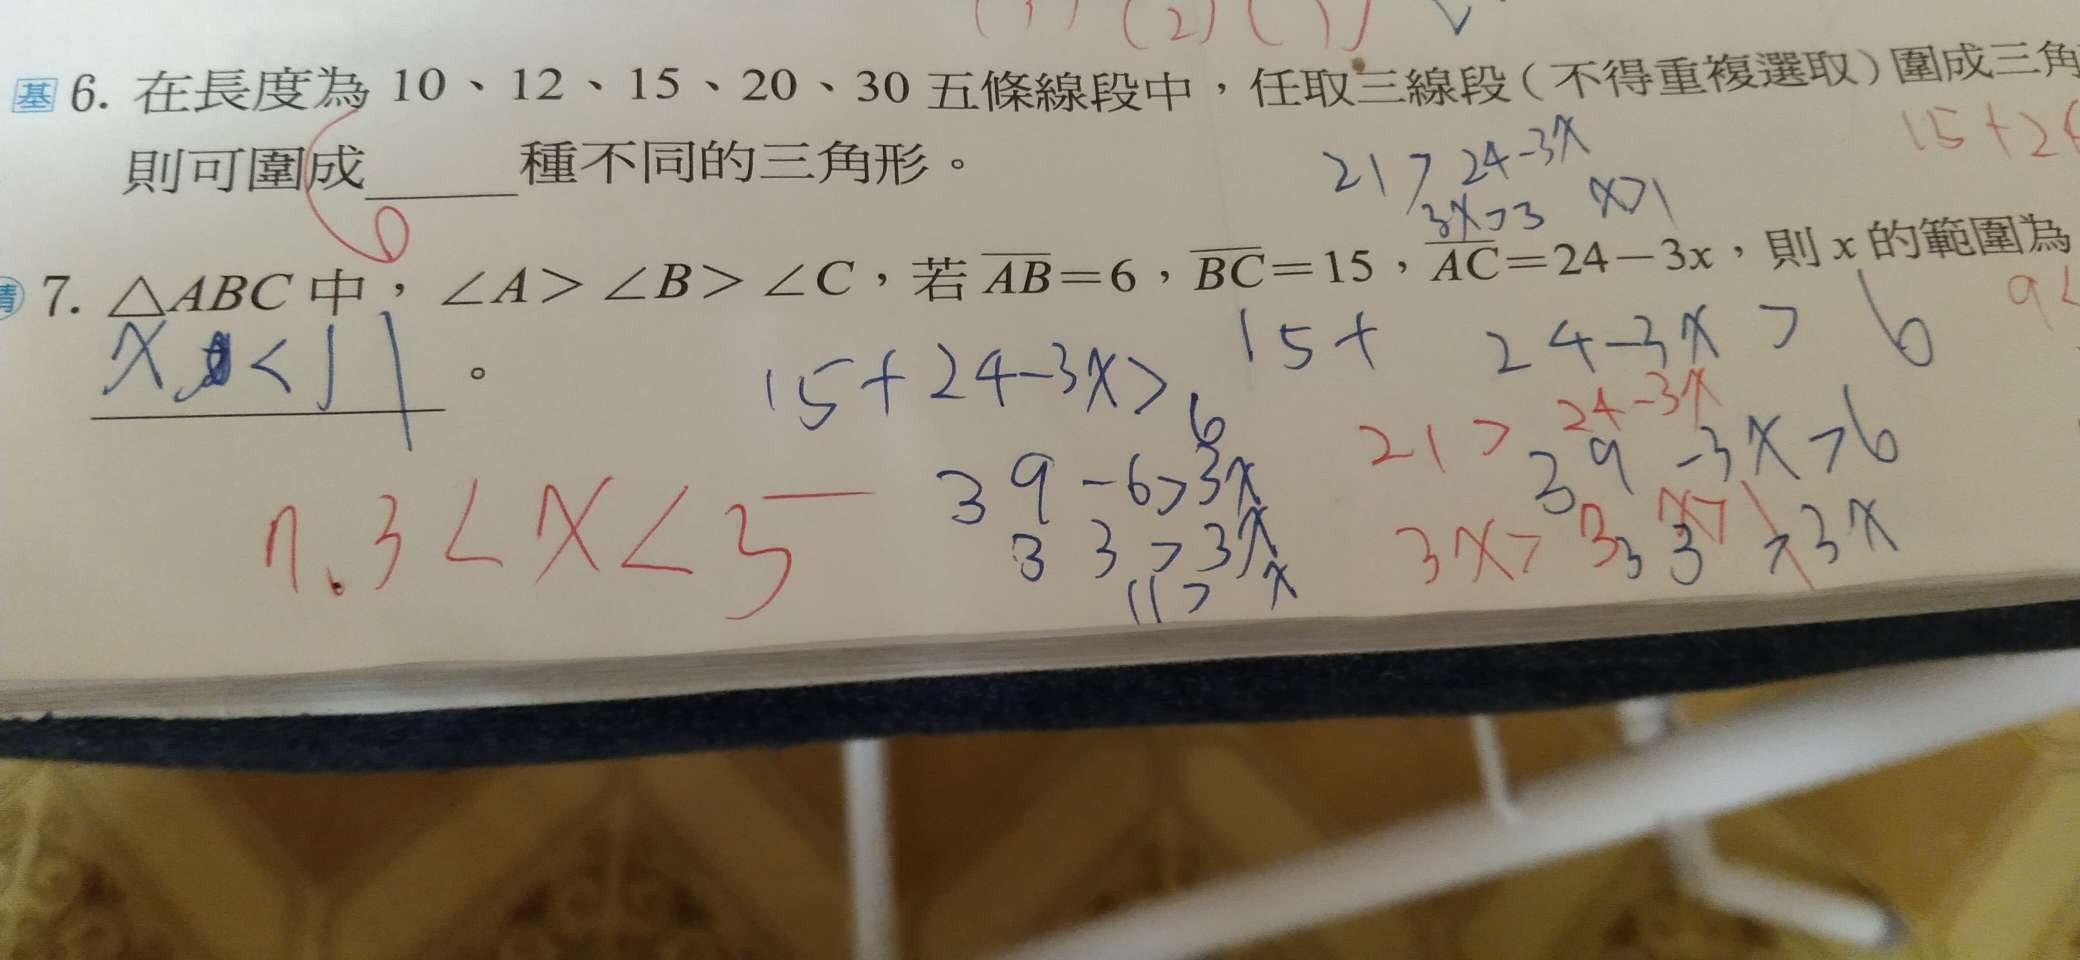 (1) (2) (1)
基 6. 在長度為 10、12、15、20、30 五條線段中，任取三線段（不得重複選取）圍成三角
則可圍成＿＿＿種不同的三角形。
6
21 > 24-3x
3x>3 x>1
15+2
7. △ABC 中，∠A＞∠B＞∠C，若 AB=6，BC=15，AC=24-3x，則 x 的範圍為
9<
x < 11 。
15+24-3x> 6
39-6>3x
33>3x
11> x
15+ 24-3x > 6
39-3x>6
33 >3x
21> 24-3x
3x>3 x>1
3<x<5